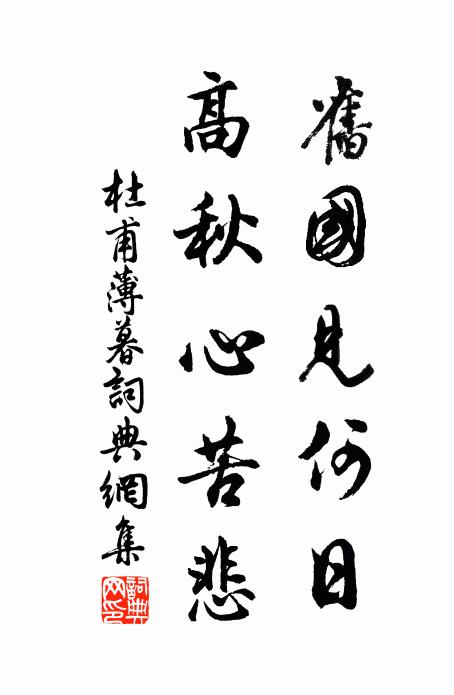 舊國見何日
高秋心苦悲
杜甫薄暮詞典網集
詞典
网印